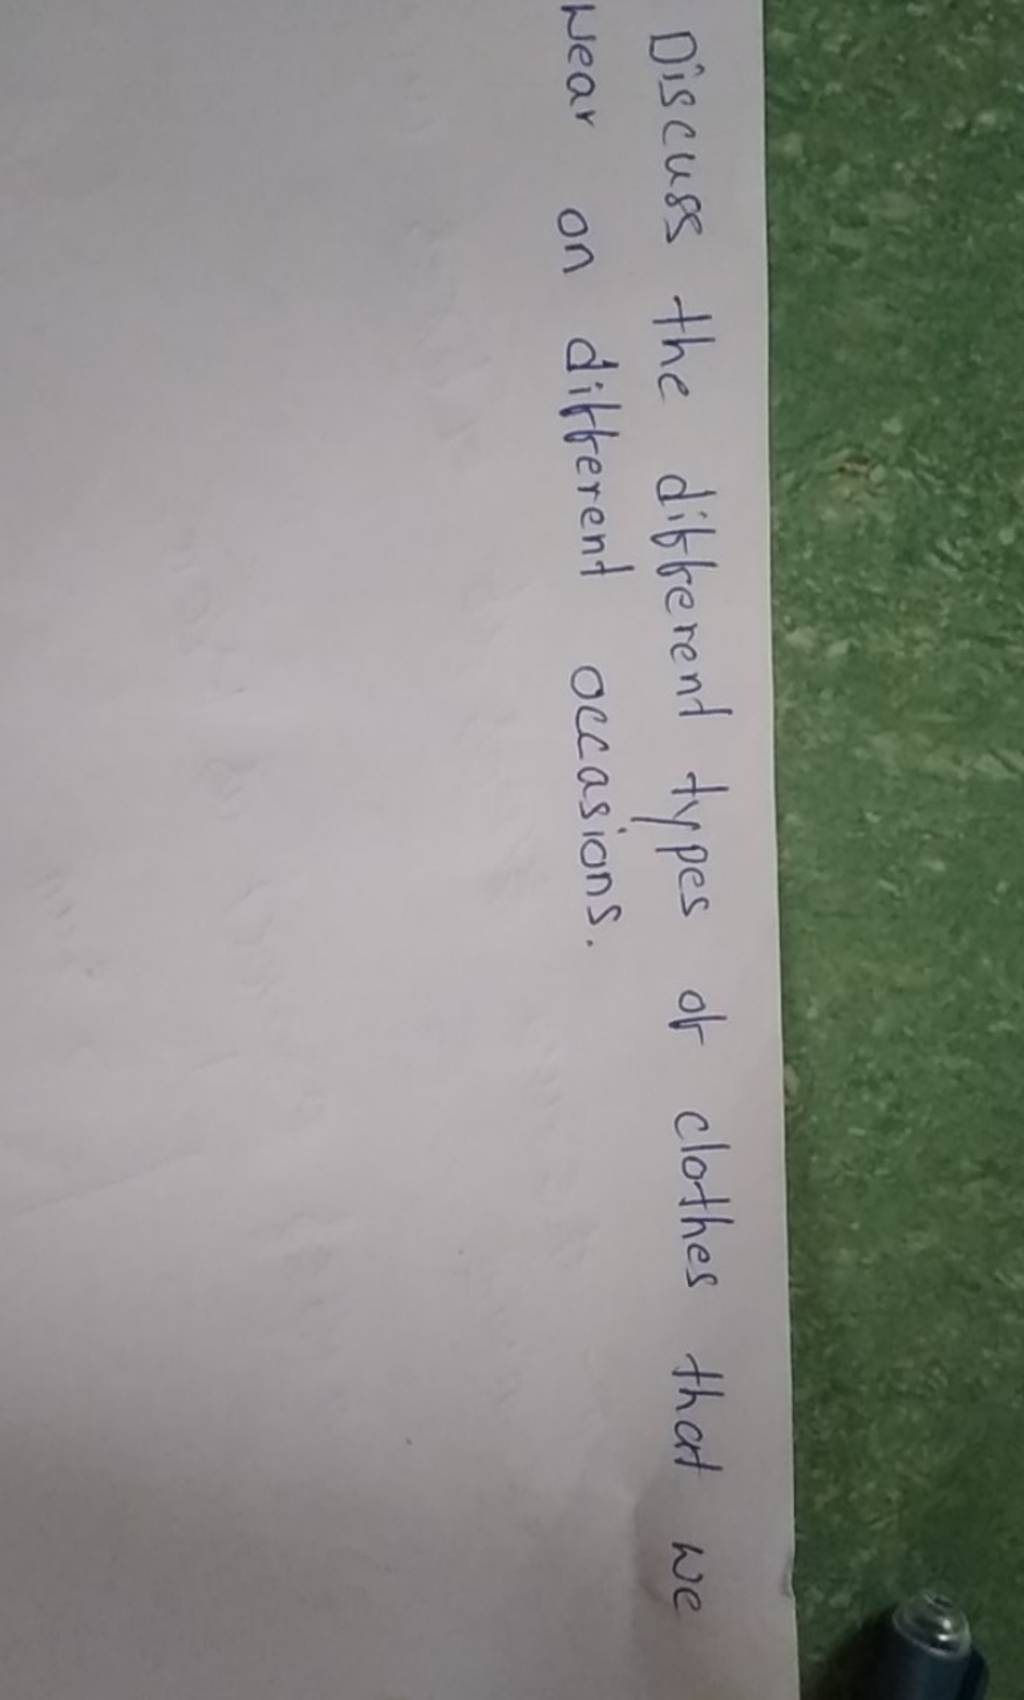 Discuss the different types of clothes that we
wear on different occasions.